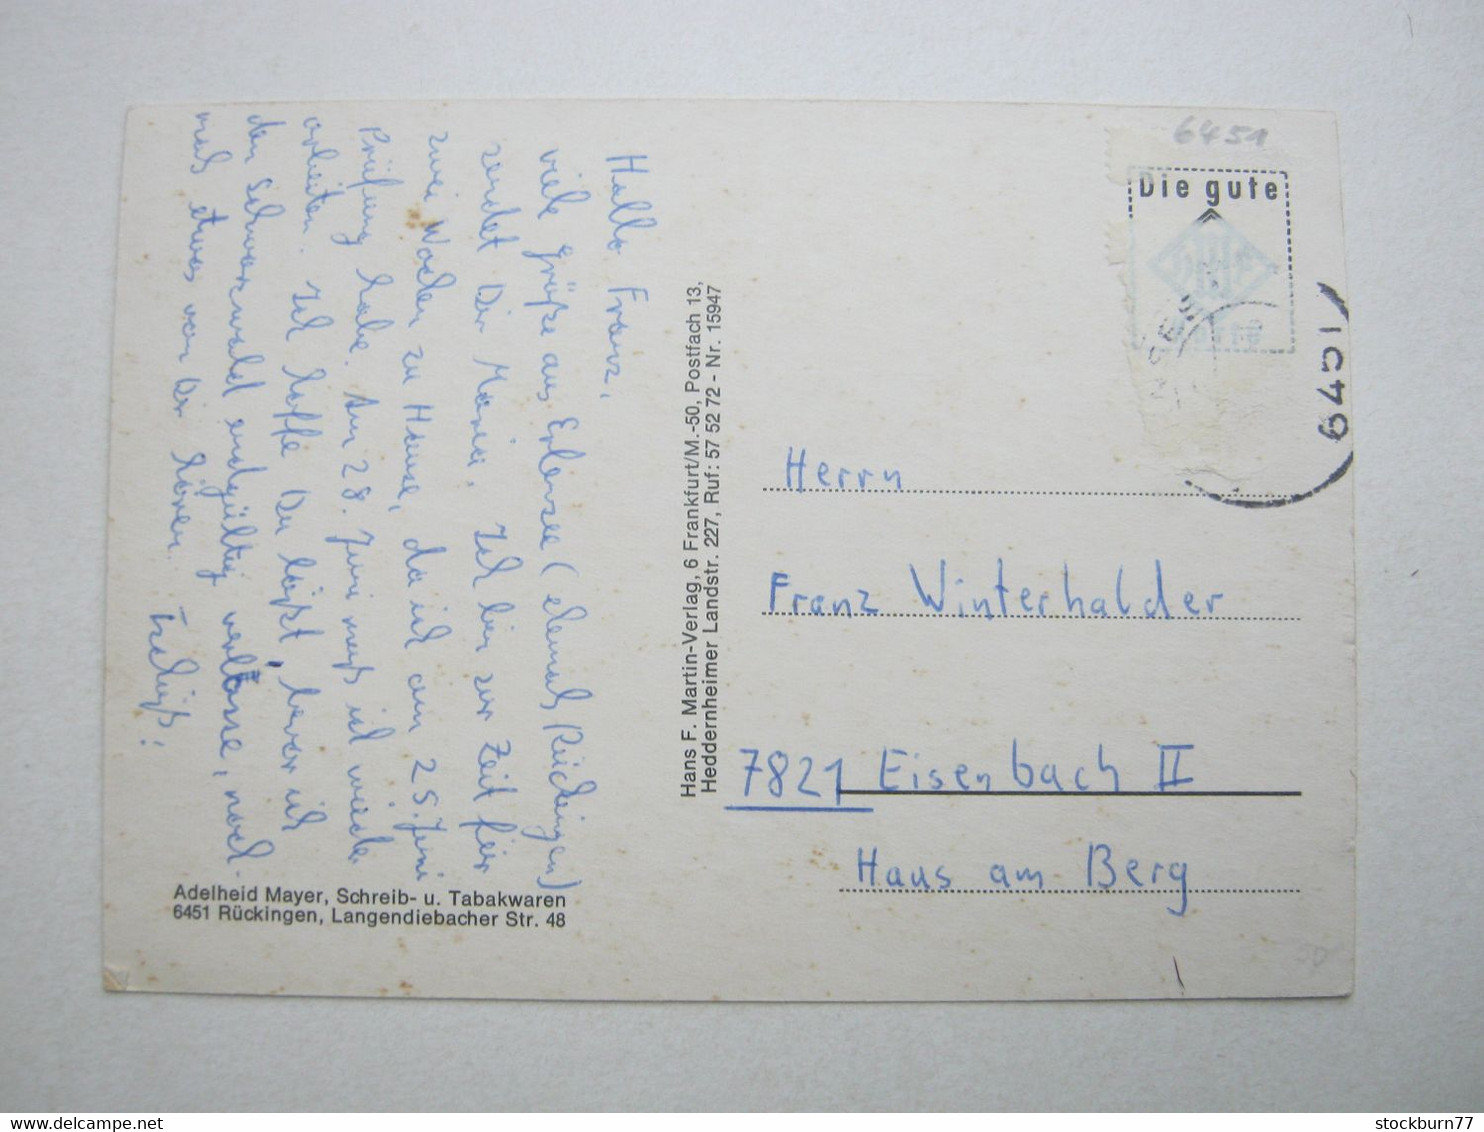 Hallo Franz,
viele Grüße aus Erlensee (ehemals Rückingen)
sendet Dir Maria. Ich bin zur Zeit für
zwei Wochen zu Hause, da ich am 25. Juni
Prüfung habe. Am 28. Juni muß ich wieder
arbeiten. Ich hoffe Du läßt, bevor ich
den Schwarzwald endgültig verlasse, noch
mal etwas von Dir hören.
Tschüß!
Adelheid Mayer, Schreib- u. Tabakwaren
6451 Rückingen, Langendiebacher Str. 48
Hans F. Martin-Verlag, 6 Frankfurt/M.-50, Postfach 13,
Heddernheimer Landstr. 227, Ruf: 57 52 72 - Nr. 15947
6451
Die gute
6451
Herrn
Franz Winterhalder
7821 Eisenbach II
Haus am Berg
stockburn77